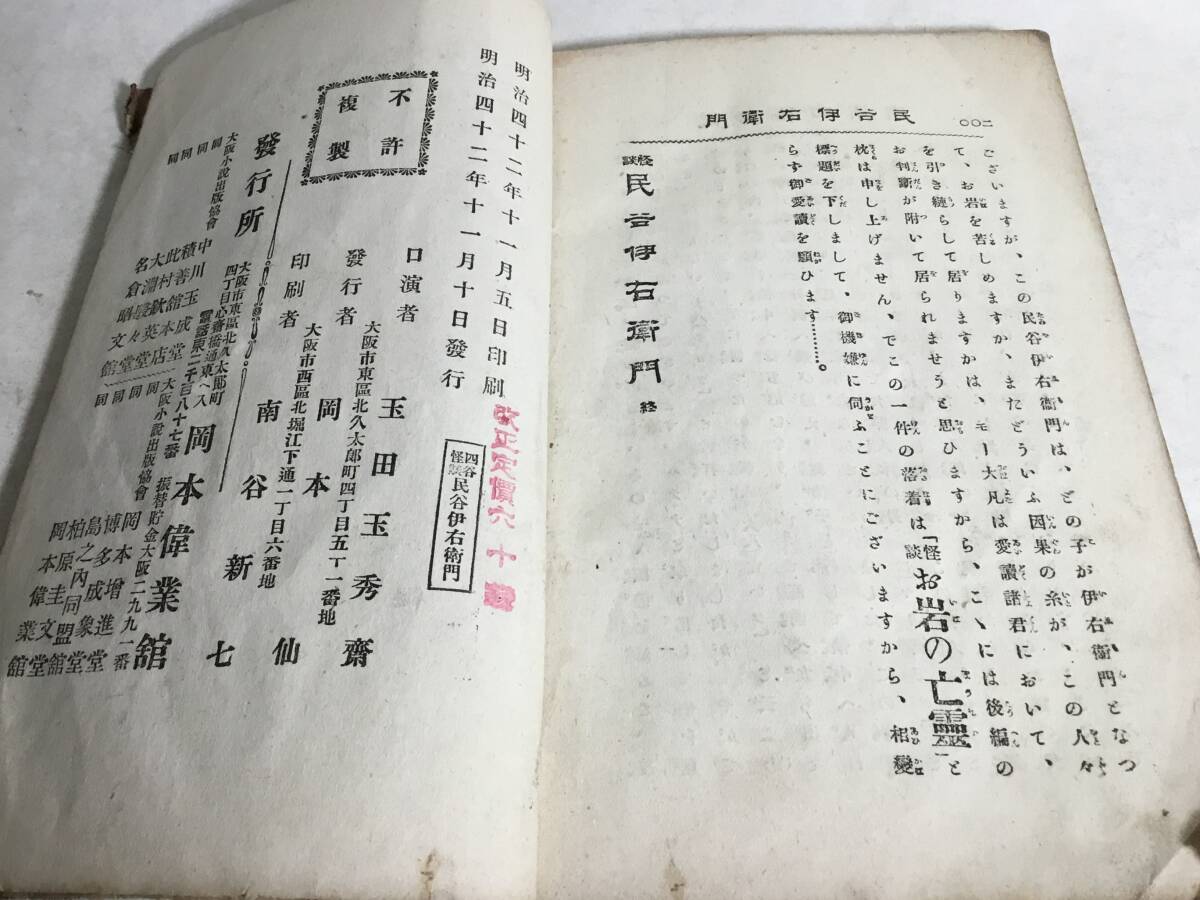 民谷伊右衛門
二〇〇
ございますが、この民谷伊右衛門は、どの子が伊右衛門となつ
て、お岩を苦しめますか、またどういふ因果の糸が、この人々
を引き縺らして居りますかは、モー大凡は愛讀諸君において、
お判斷が附いて居られませうと思ひますから、こゝには後編の
枕は申し上げません、でこの一件の落着は「怪談お岩の亡靈」と
標題を下しまして、御機嫌に伺ふことにございますから、相變
らず御愛讀を願ひます……。
怪談 民谷伊右衛門 終
明治四十二年十一月五日印刷
明治四十二年十一月十日發行
改正定價六十錢
四谷怪談 民谷伊右衛門
不許複製
口演者 玉田玉秀齋
大阪市東區北久太郎町四丁目五十一番地
發行者 岡本仙
大阪市西區北堀江下通一丁目六番地
印刷者 南谷新七
發行所
大阪市東區北久太郎町
四丁目心齋橋通東ヘ入
岡本偉業館
電話東二千百八十七番 振替貯金大阪二九九一番
大阪小說出版協會 中川玉成堂
同 積善館本店
同 此村欽英堂
同 大淵々堂
同 名倉昭文館
大阪小說出版協會 岡本增進堂
同 博多成象堂
同 島之內同盟館
同 柏原圭文堂
同 岡本偉業館